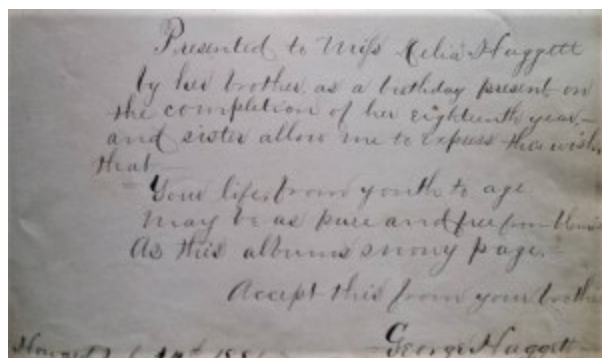 Presented to Miss Celia Huggett
by her brother, as a birthday present on
the completion of her eighteenth year,—
and sister allow me to express this wish,
that—
Your life, from youth to age
may be as pure and free from
As this albums snowy page.—
Accept this from your brother
George Huggett—